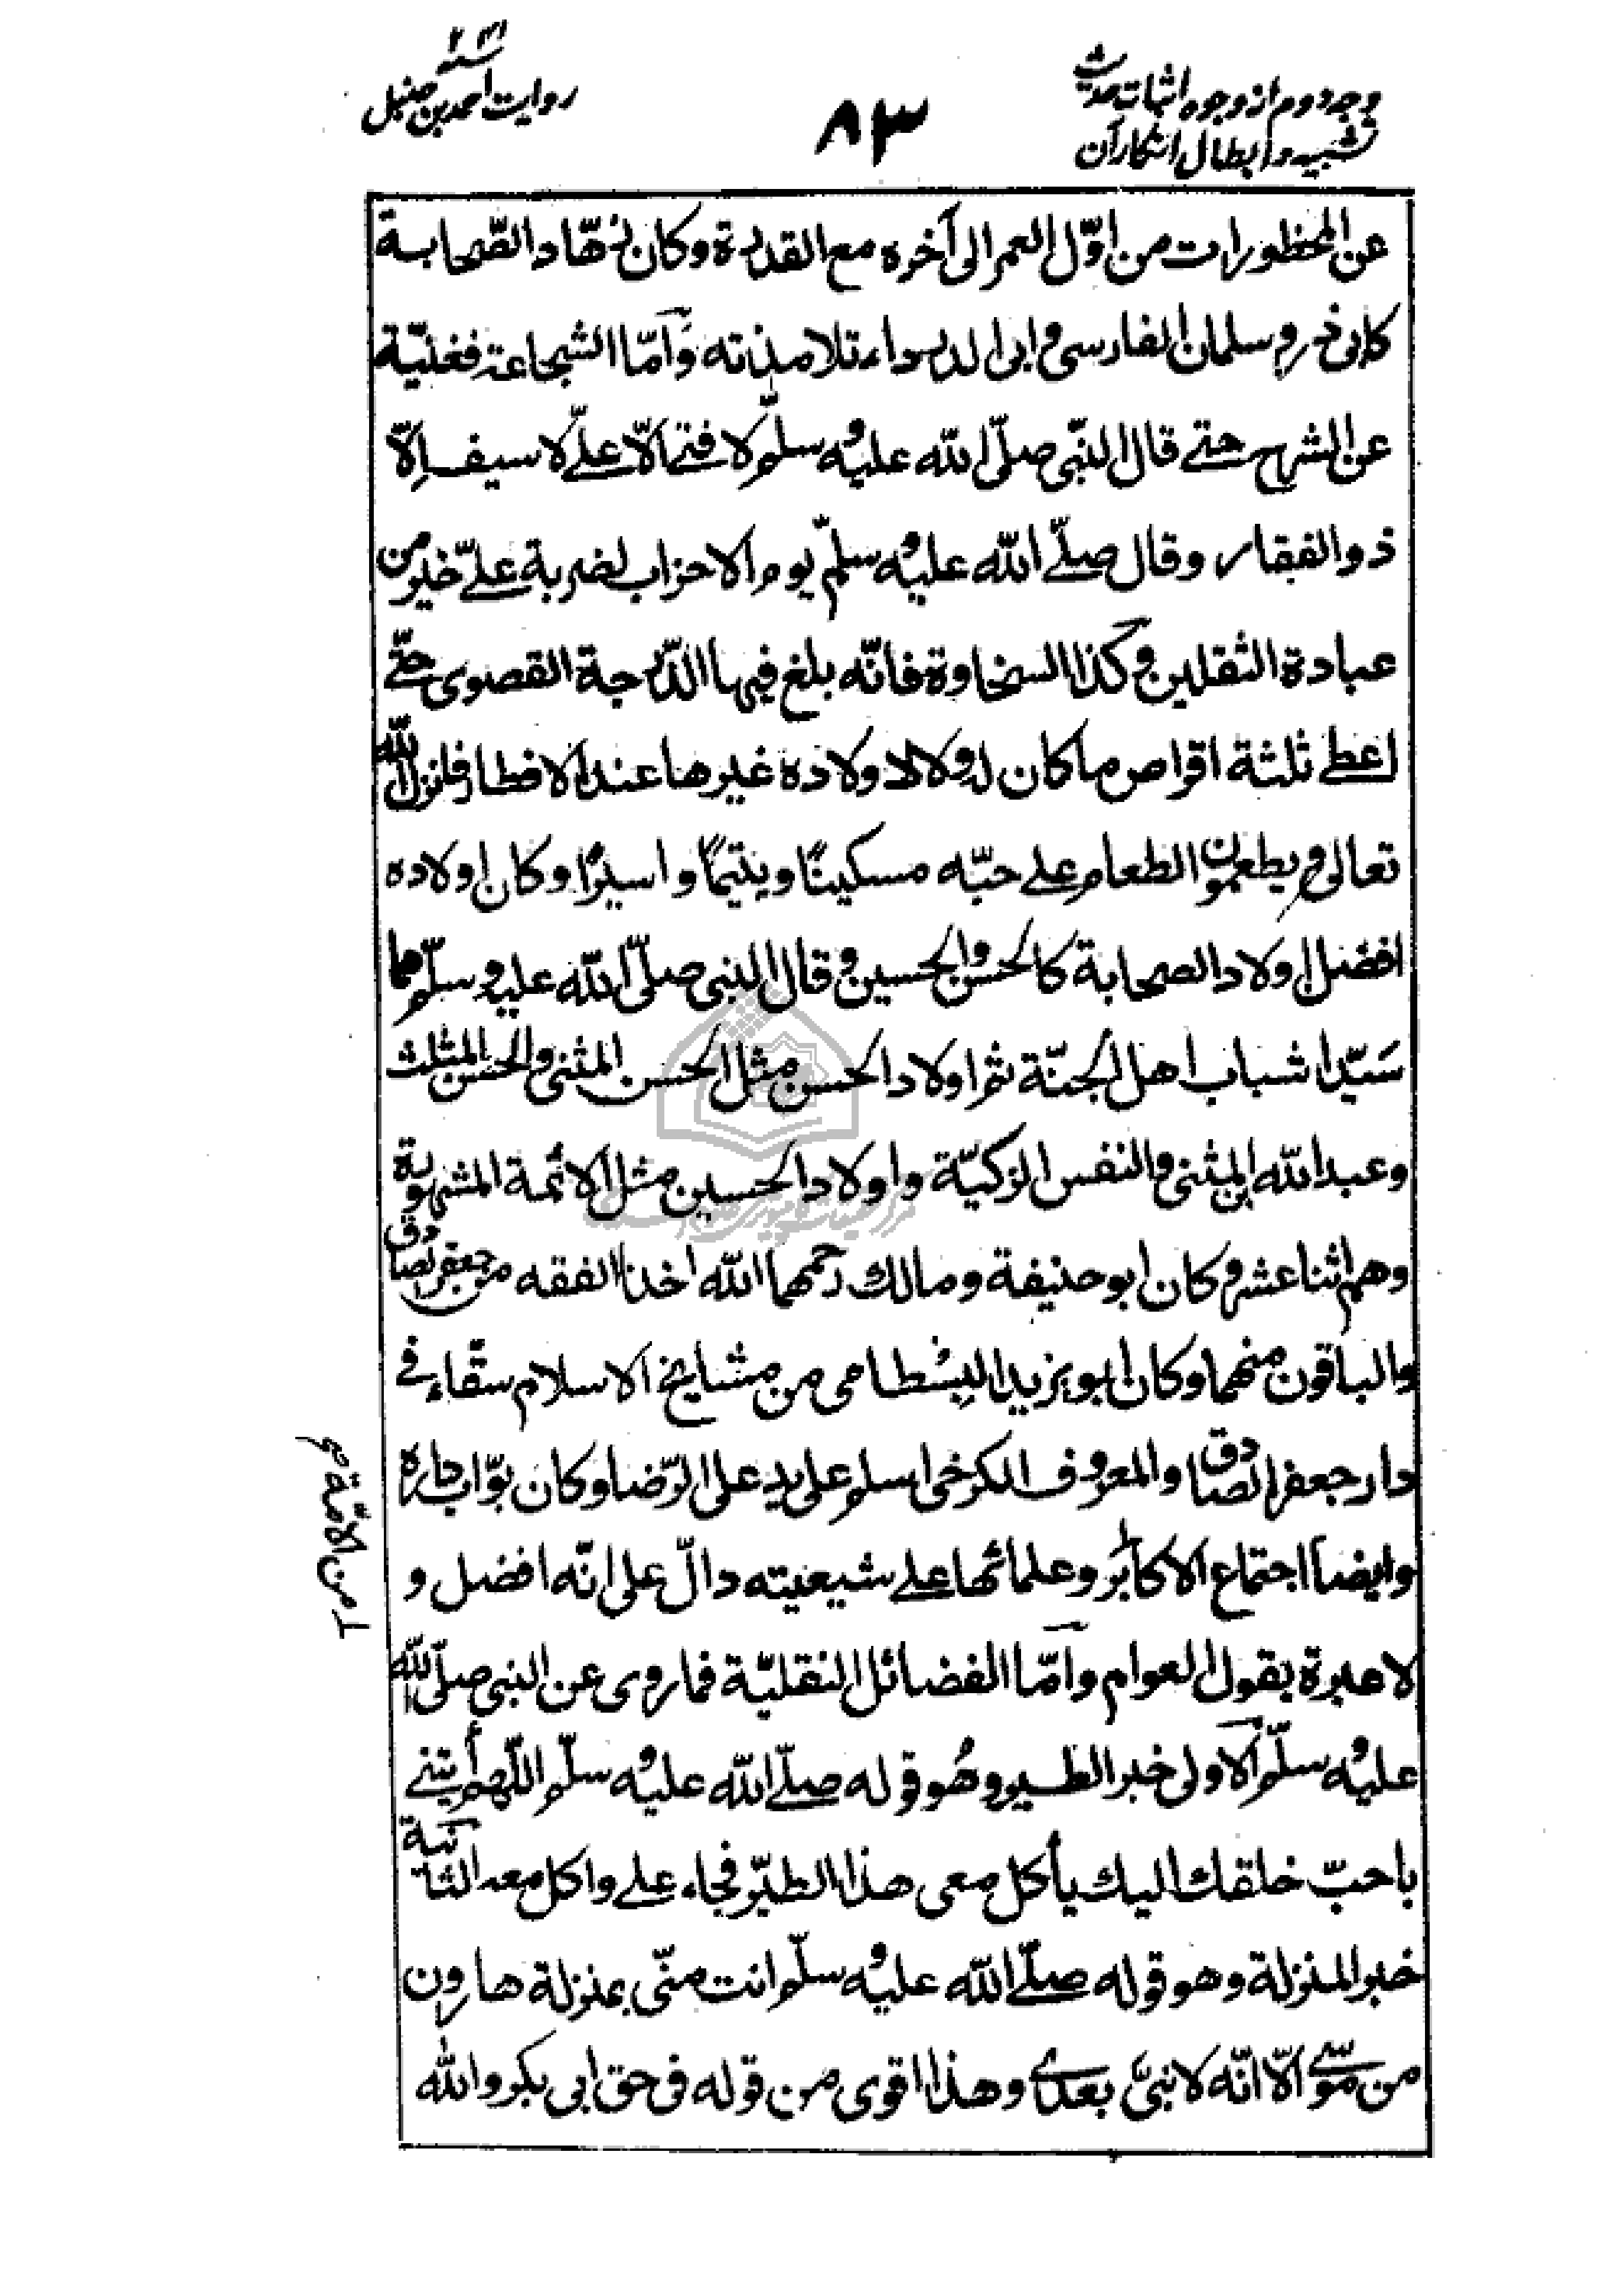 وجه دوم از وجوه اثبات حدیث
تشبیه و ابطال انکار آن
۸۳
سنه ۲۴۱
روایت احمد بن حنبل
عن المحظورات من اوّل العمر الى آخره مع القدرة وكان زهّاد الصّحابة
كابى ذر و سلمان الفارسى و ابى الدرداء تلامذته وَامّا الشجاعة فغنيّة
عن الشرح حتى قال النّبى صلّى الله عليه و سلّم لا فتى الّا علىّ لا سيف الّا
ذو الفقار وقال صلّى الله عليه و سلّم يوم الاحزاب لضربة علىّ خير من
عبادة الثقلين و كذا السخاوة فانّه بلغ فيها الدّرجة القصوى حتّى
اعطى ثلثة اقراص ما كان له ولا لاولاده غيرها عند الافطار فانزل الله
تعالى و يطعمون الطعام على حبّه مسكينًا ويتيمًا واسيرًا وكان اولاده
افضل اولاد الصحابة كالحسن والحسين و قال النبى صلّى الله عليه و سلّم هما
سَيّدا شباب اهل الجنّة ثم اولاد الحسن مثل الحسن المثنى والحسن المثلث
وعبد الله المثنى والنفس الزكيّة واولاد الحسين مثل الائمة المشهورة
وهم اثنا عشر و كان ابو حنيفة ومالك رحمهما الله اخذا الفقه من جعفر الصادق
والباقون منهما وكان ابو يزيد البِسْطامى من مشايخ الاسلام سقّاء فى
دار جعفر الصادق والمعروف الكرخى اسلم على يد على الرّضا وكان بوّاب داره
وايضا اجتماع الاكابر وعلمائها على شيعيته دالّ على انّه افضل و
لا عبرة بقول العوام وامّا الفضائل النقليّة فما روى عن النبى صلّى الله
عليه و سلّم الاولى خبر الطير وهُو قوله صلّى الله عليه و سلّم اللّهم أيتنى
باحبّ خلقك اليك يأكل معى هذا الطيّر فجاء على واكل معه الثانية
خبر المنزلة وهو قوله صلّى الله عليه و سلّم انت منّى بمنزلة هارون
من موسى الّا انّه لا نبىّ بعدى وهذا اقوى من قوله فى حق ابى بكر والله
من الامة